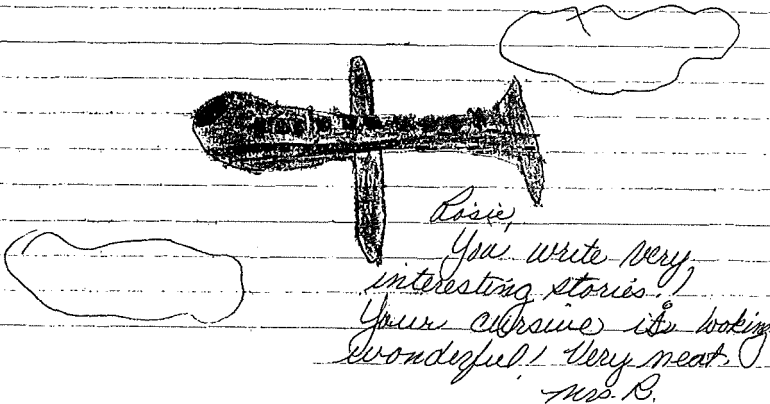 Rosie,
You write very
interesting stories!
Your cursive is looking
wonderful! Very neat.
Mrs. R.